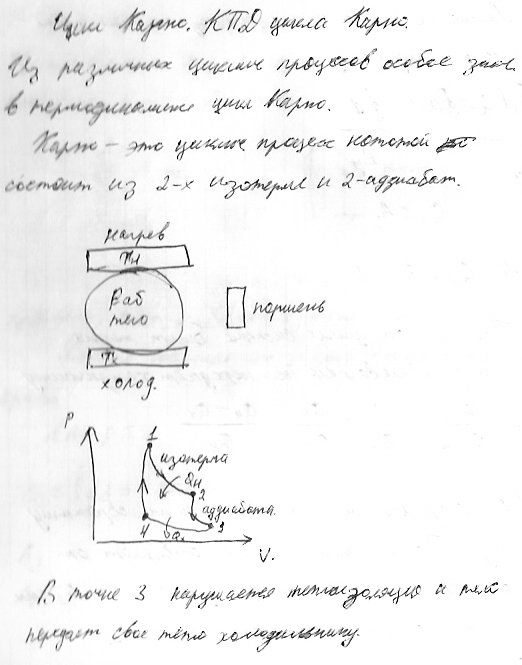 Цикл Карно. КПД цикла Карно.
Из различных циклич процессов особое зан.
в термодинамике цикл Карно.
Карно – это циклич процесс которой
состоит из 2-х изотерм и 2-адиабат.
нагрев
Тн
Раб
тело
поршень
Тх
холод.
P
1
изотерма
Qн
2
аддиабата.
4
Q
3
V.
В точке 3 нарушается теплоизоляция и тело
передает свое тепло холодильнику.